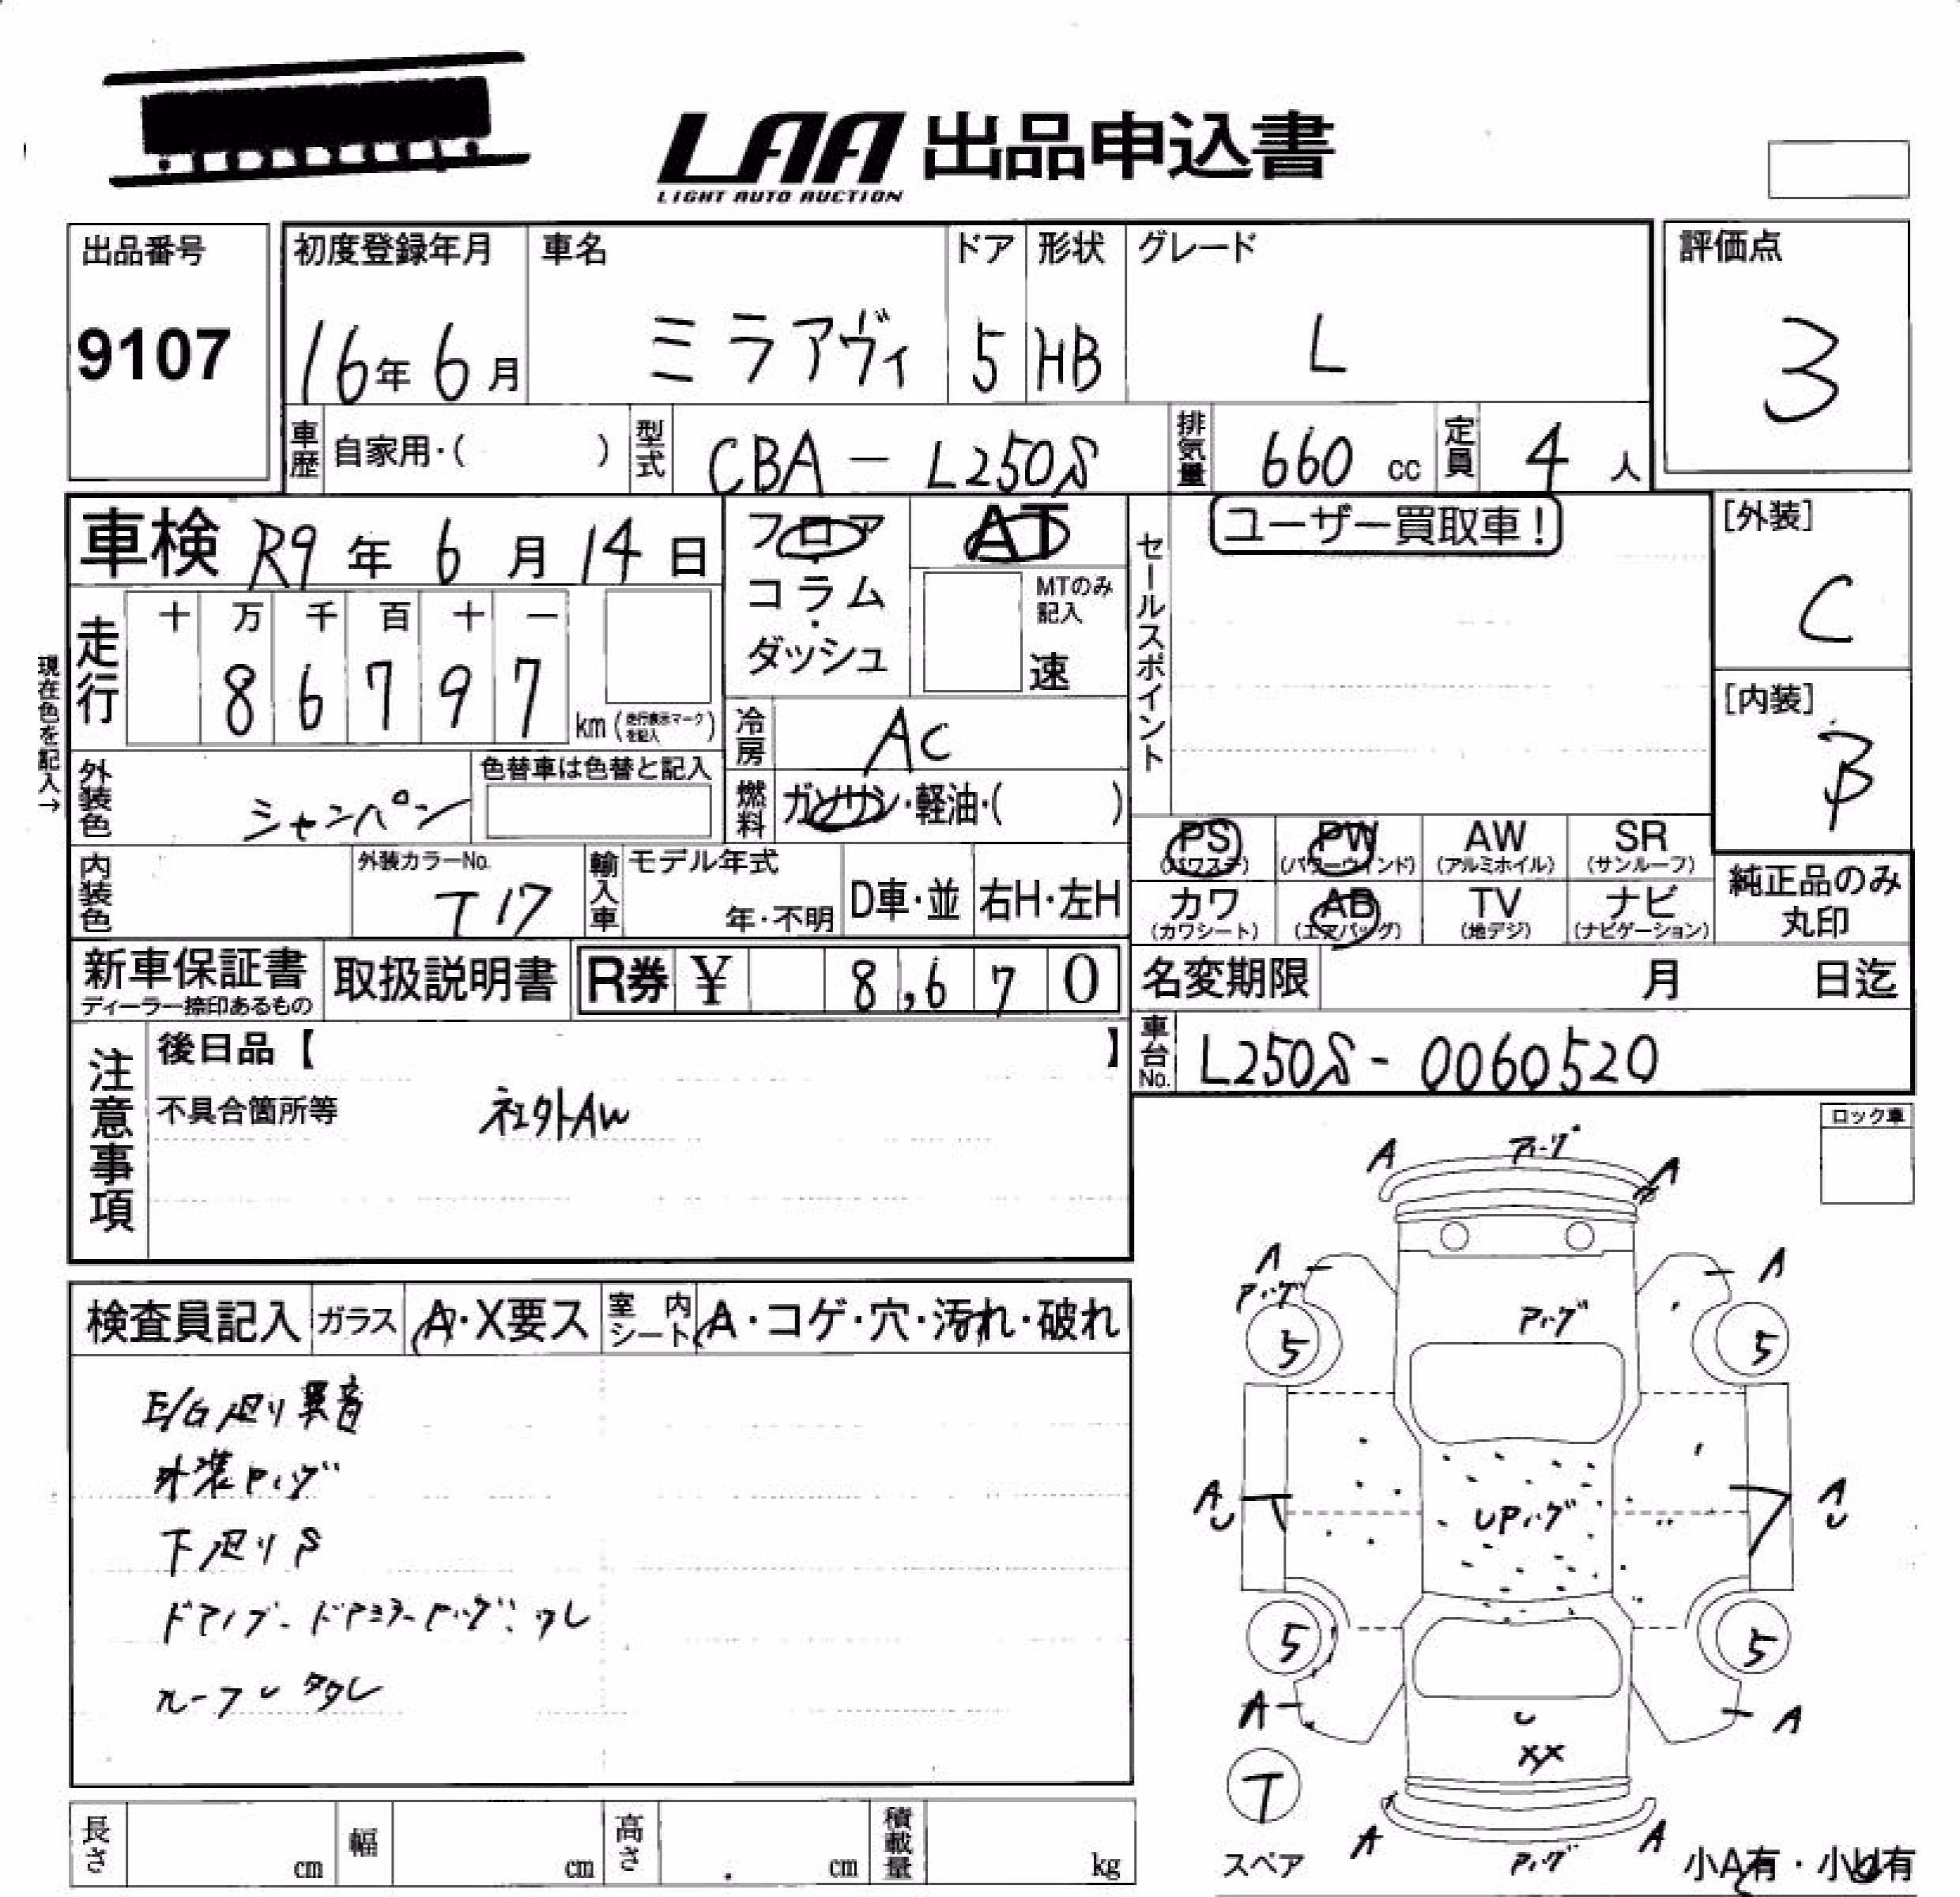 LAA 出品申込書
LIGHT AUTO AUCTION
出品番号
9107
初度登録年月
16年 6月
車名
ミラアヴィ
ドア
5
形状
HB
グレード
L
評価点
3
車歴 自家用・( )
型式 CBA - L250S
排気量 660 cc
定員 4 人
車検 R9 年 6 月 14 日
フロア・コラム・ダッシュ
AT
MTのみ記入
速
セールスポイント
ユーザー買取車!
[外装]
C
[内装]
B
現在色を記入→
走行
十 万 千 百 十 一
8 6 7 9 7
km(走行表示マークを記入)
冷房 AC
燃料 ガソリン・軽油・( )
外装色 シャンパン
色替車は色替と記入
内装色
外装カラーNo.
T17
輸入車
モデル年式
年・不明
D車・並
右H・左H
PS
(パワステ)
PW
(パワーウィンド)
AW
(アルミホイル)
SR
(サンルーフ)
カワ
(カワシート)
AB
(エアバッグ)
TV
(地デジ)
ナビ
(ナビゲーション)
純正品のみ
丸印
新車保証書
ディーラー捺印あるもの
取扱説明書
R券 ¥ 8,670
名変期限 月 日迄
車台No. L250S - 0060520
注意事項
後日品【 】
不具合箇所等 社外AW
ロック車
検査員記入
ガラス A・X要ス
室内シート A・コゲ・穴・汚れ・破れ
E/G廻り異音
外装ハゲ
下廻りS
A A
A A
5 5
A U A U
5 5
A A
U
XX
T
スペア
A A
小A有・小U有
長さ cm
幅 cm
高さ cm
積載量 kg